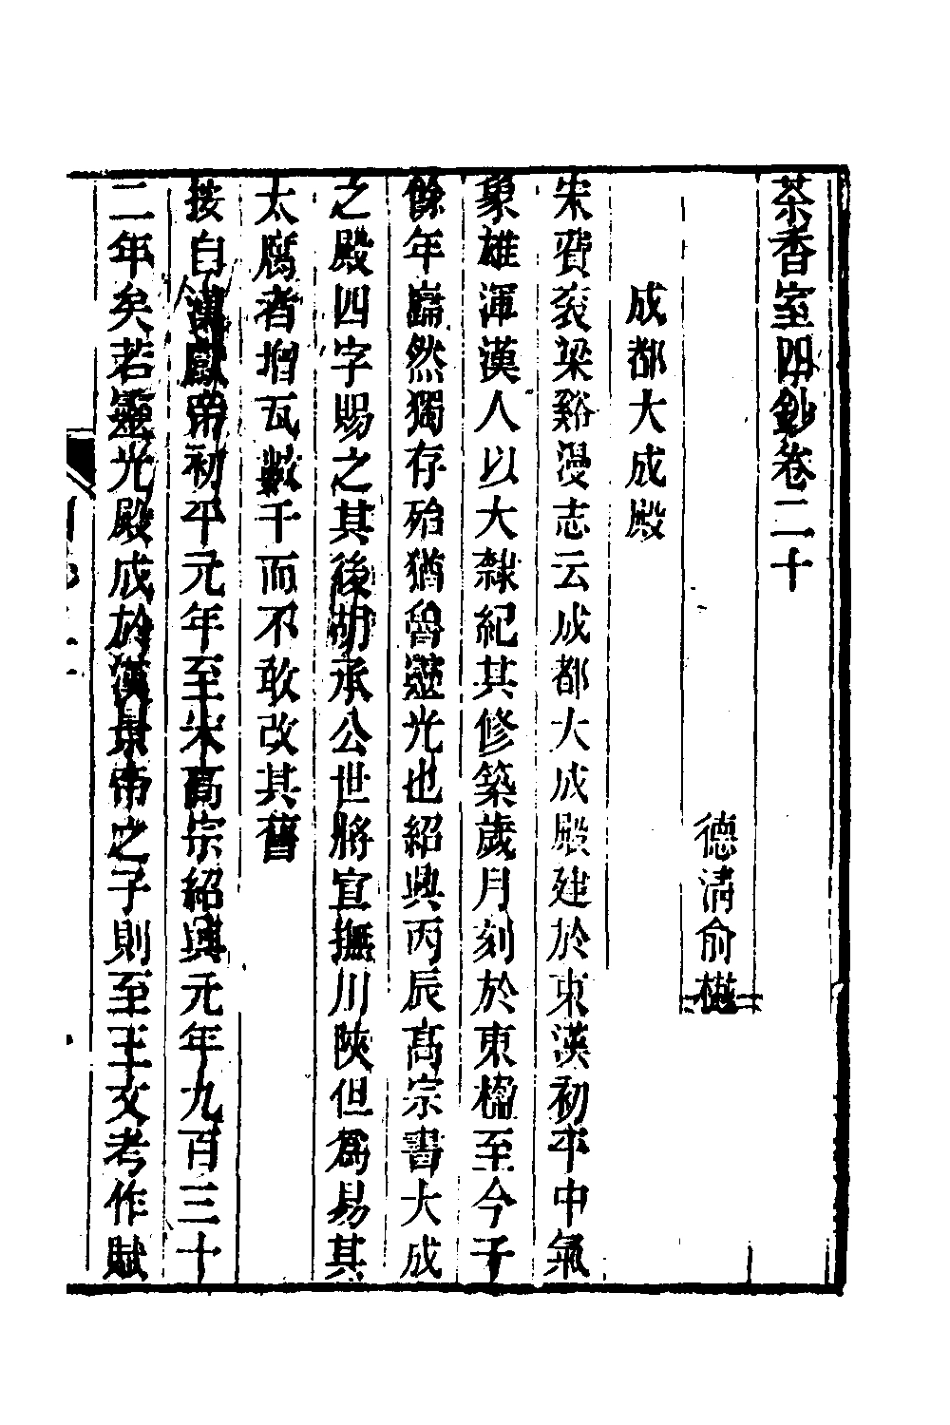 茶香室四鈔卷二十
德清俞樾
成都大成殿
宋費袞梁谿漫志云成都大成殿建於東漢初平中氣
象雄渾漢人以大隸紀其修築歲月刻於東楹至今千
餘年巋然獨存殆猶魯靈光也紹興丙辰高宗書大成
之殿四字賜之其後胡承公世將宣撫川陝但爲易其
太腐者增瓦數千而不敢改其舊
按自漢獻帝初平元年至宋高宗紹興元年九百三十
二年矣若靈光殿成於漢景帝之子則至王文考作賦